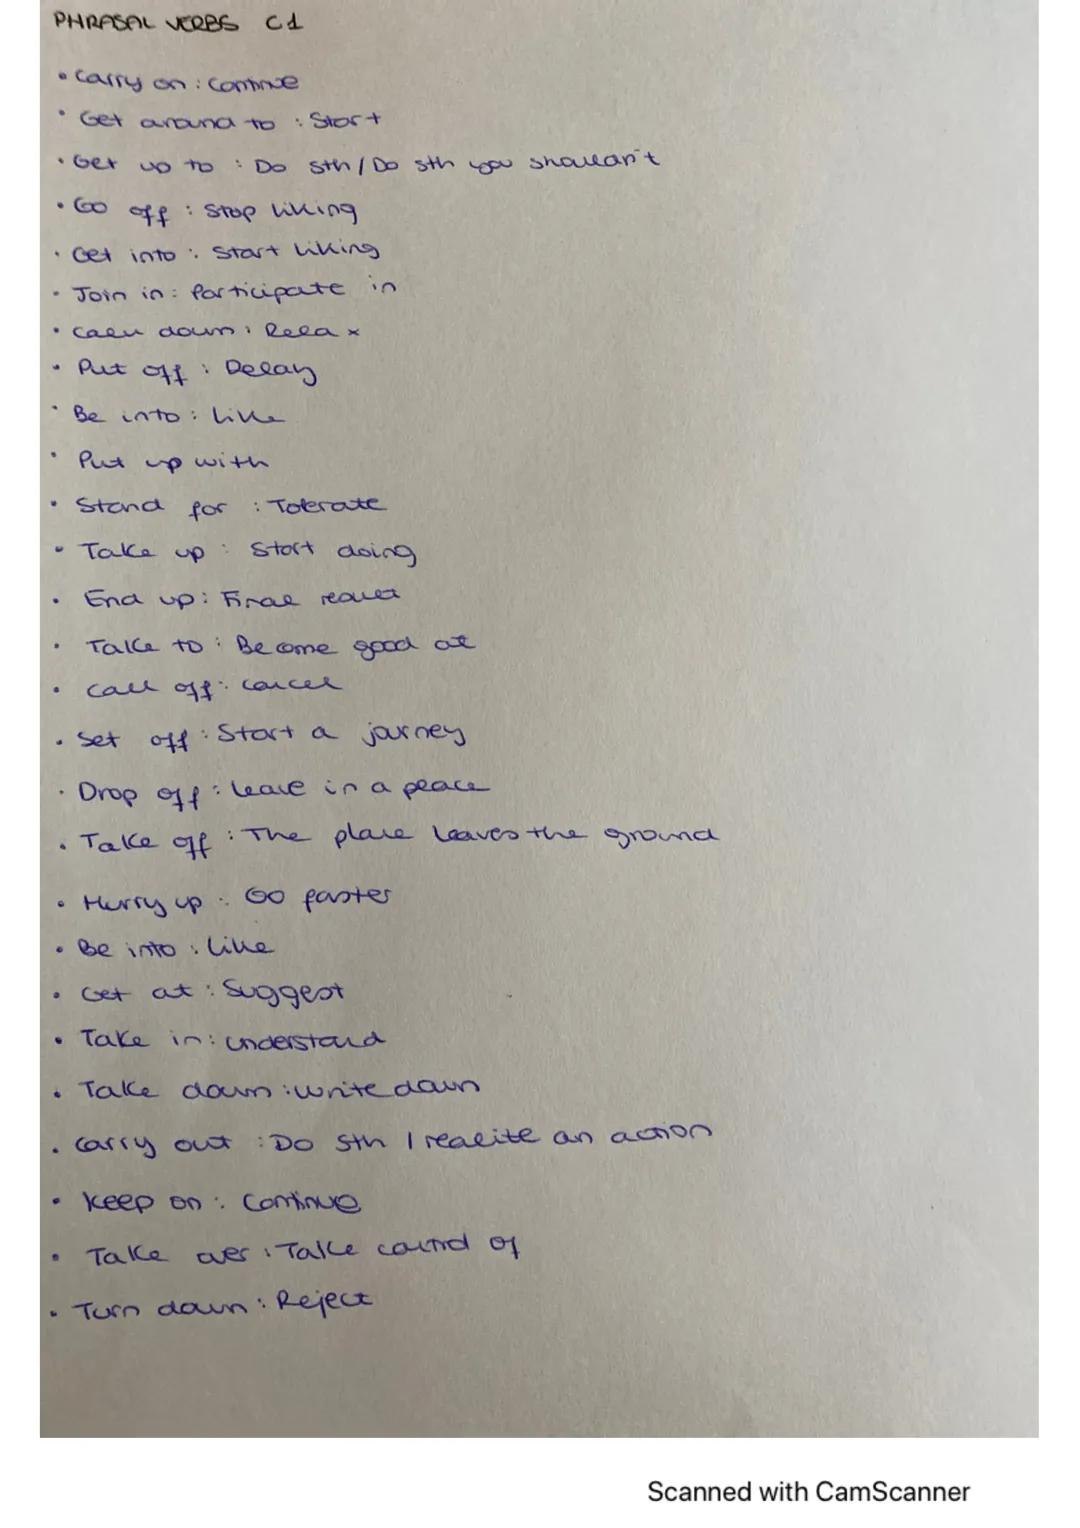 PHRASAL VERBS C1
• Carry on : Continue
• Get around to : Start
• Get up to : Do sth / Do sth you shouldn't
• Go off : Stop liking
• Get into : Start liking
• Join in : Participate in
• Calm down : Relax
• Put off : Delay
• Be into : Like
• Put up with
• Stand for : Tolerate
• Take up : Start doing
• End up : Final result
• Take to : Become good at
• Call off : Cancel
• Set off : Start a journey
• Drop off : Leave in a place
• Take off : The plane leaves the ground
• Hurry up : Go faster
• Be into : Like
• Get at : Suggest
• Take in : Understand
• Take down : Write down
• Carry out : Do sth / realite an action
• Keep on : Continue
• Take over : Take control of
• Turn down : Reject
Scanned with CamScanner